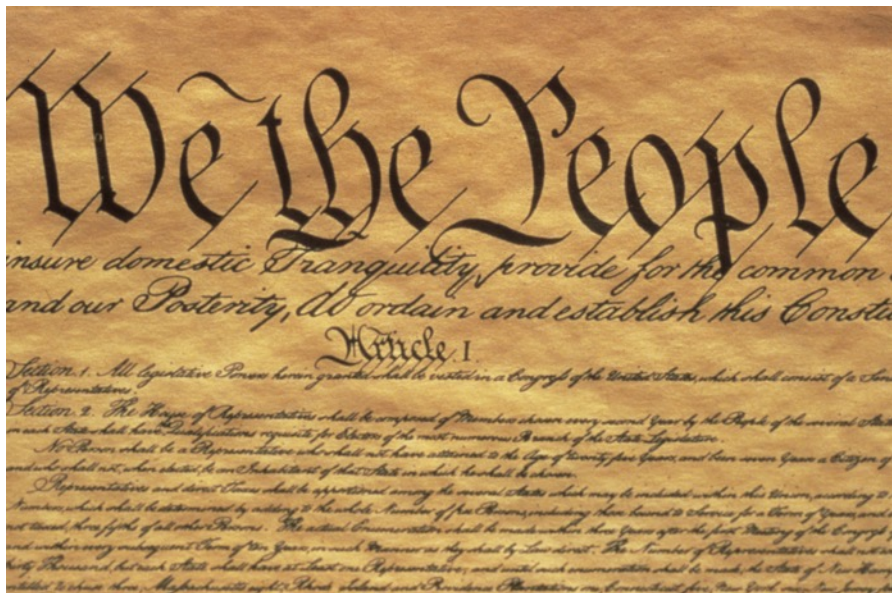 We the People
insure domestic Tranquility, provide for the common
and our Posterity, do ordain and establish this Constit
Article. I.
Section. 1. All legislative Powers herein granted shall be vested in a Congress of the United States, which shall consist of a Sen
of Representatives.
Section. 2. The House of Representatives shall be composed of Members chosen every second Year by the People of the several States
in each State shall have Qualifications requisite for Electors of the most numerous Branch of the State Legislature.
No Person shall be a Representative who shall not have attained to the Age of twenty five Years, and been seven Years a Citizen of
and who shall not, when elected, be an Inhabitant of that State in which he shall be chosen.
Representatives and direct Taxes shall be apportioned among the several States which may be included within this Union, according to
Numbers, which shall be determined by adding to the whole Number of free Persons, including those bound to Service for a Term of Years, and
not taxed, three fifths of all other Persons. The actual Enumeration shall be made within three Years after the first Meeting of the Congress
and within every subsequent Term of ten Years, in such Manner as they shall by Law direct. The Number of Representatives shall not
thirty Thousand, but each State shall have at Least one Representative; and until such enumeration shall be made, the State of New Hamp
entitled to chuse three, Massachusetts eight, Rhode Island and Providence Plantations one, Connecticut five, New York six, New Jersey